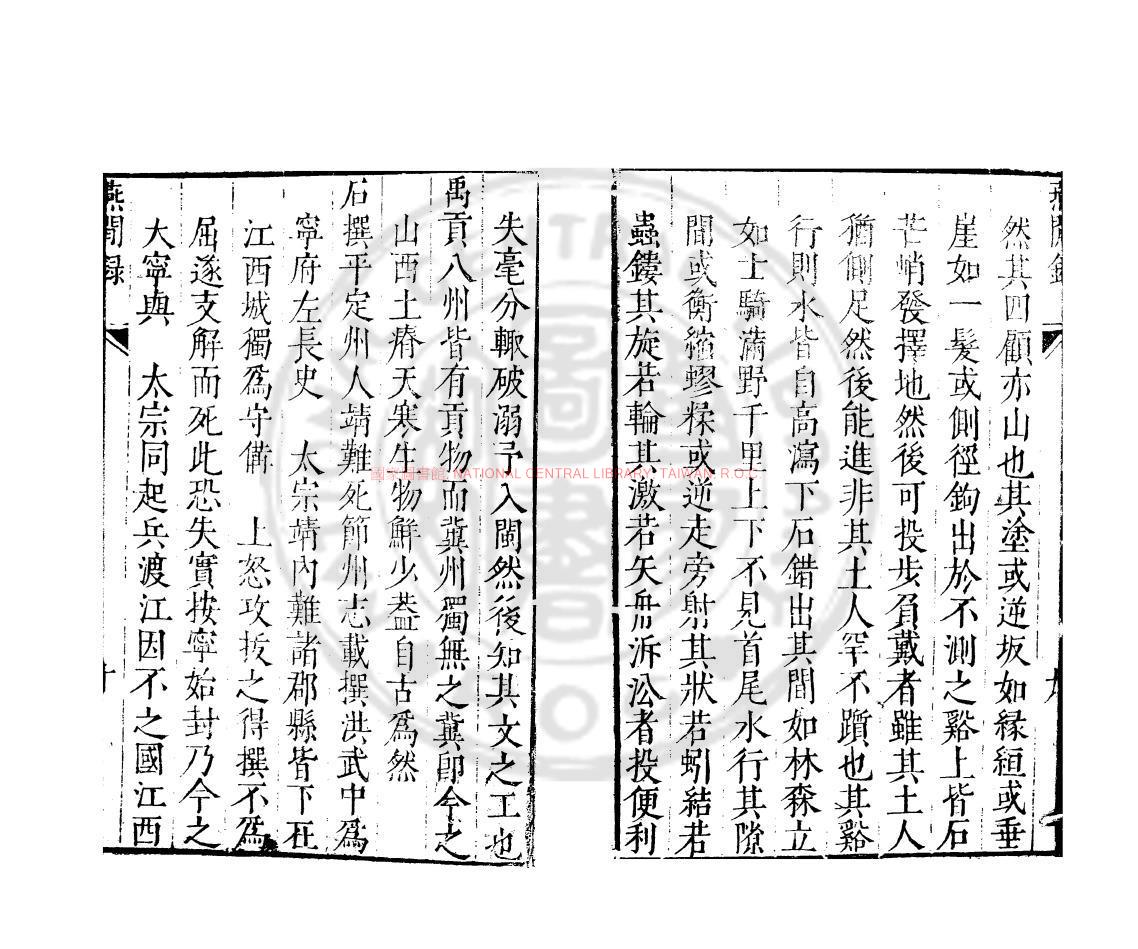 燕閒錄
然其四顧亦山也其塗或逆坂如緣絙或垂
崖如一髮或側徑鉤出於不測之谿上皆石
芒峭發擇地然後可投步負戴者雖其土人
猶側足然後能進非其土人罕不躓也其谿
行則水皆自高瀉下石錯出其間如林森立
如士騎滿野千里上下不見首尾水行其隙
間或衡縮蟉糅或逆走旁射其狀若蚓結若
蟲鏤其旋若輪其激若矢舟泝沿者投便利
失毫分輙破溺予入閩然後知其文之工也
禹貢八州皆有貢物而冀州獨無之冀卽今之
山西土瘠天寒生物鮮少葢自古爲然
石撰平定州人靖難死節州志載撰洪武中爲
寧府左長史　太宗靖內難諸郡縣皆下在
江西城獨爲守備　上怒攻拔之得撰不爲
屈遂支解而死此恐失實按寧始封乃今之
大寧與　太宗同起兵渡江因不之國江西
燕閒錄
十
國家圖書館 NATIONAL CENTRAL LIBRARY, TAIWAN, R.O.C.